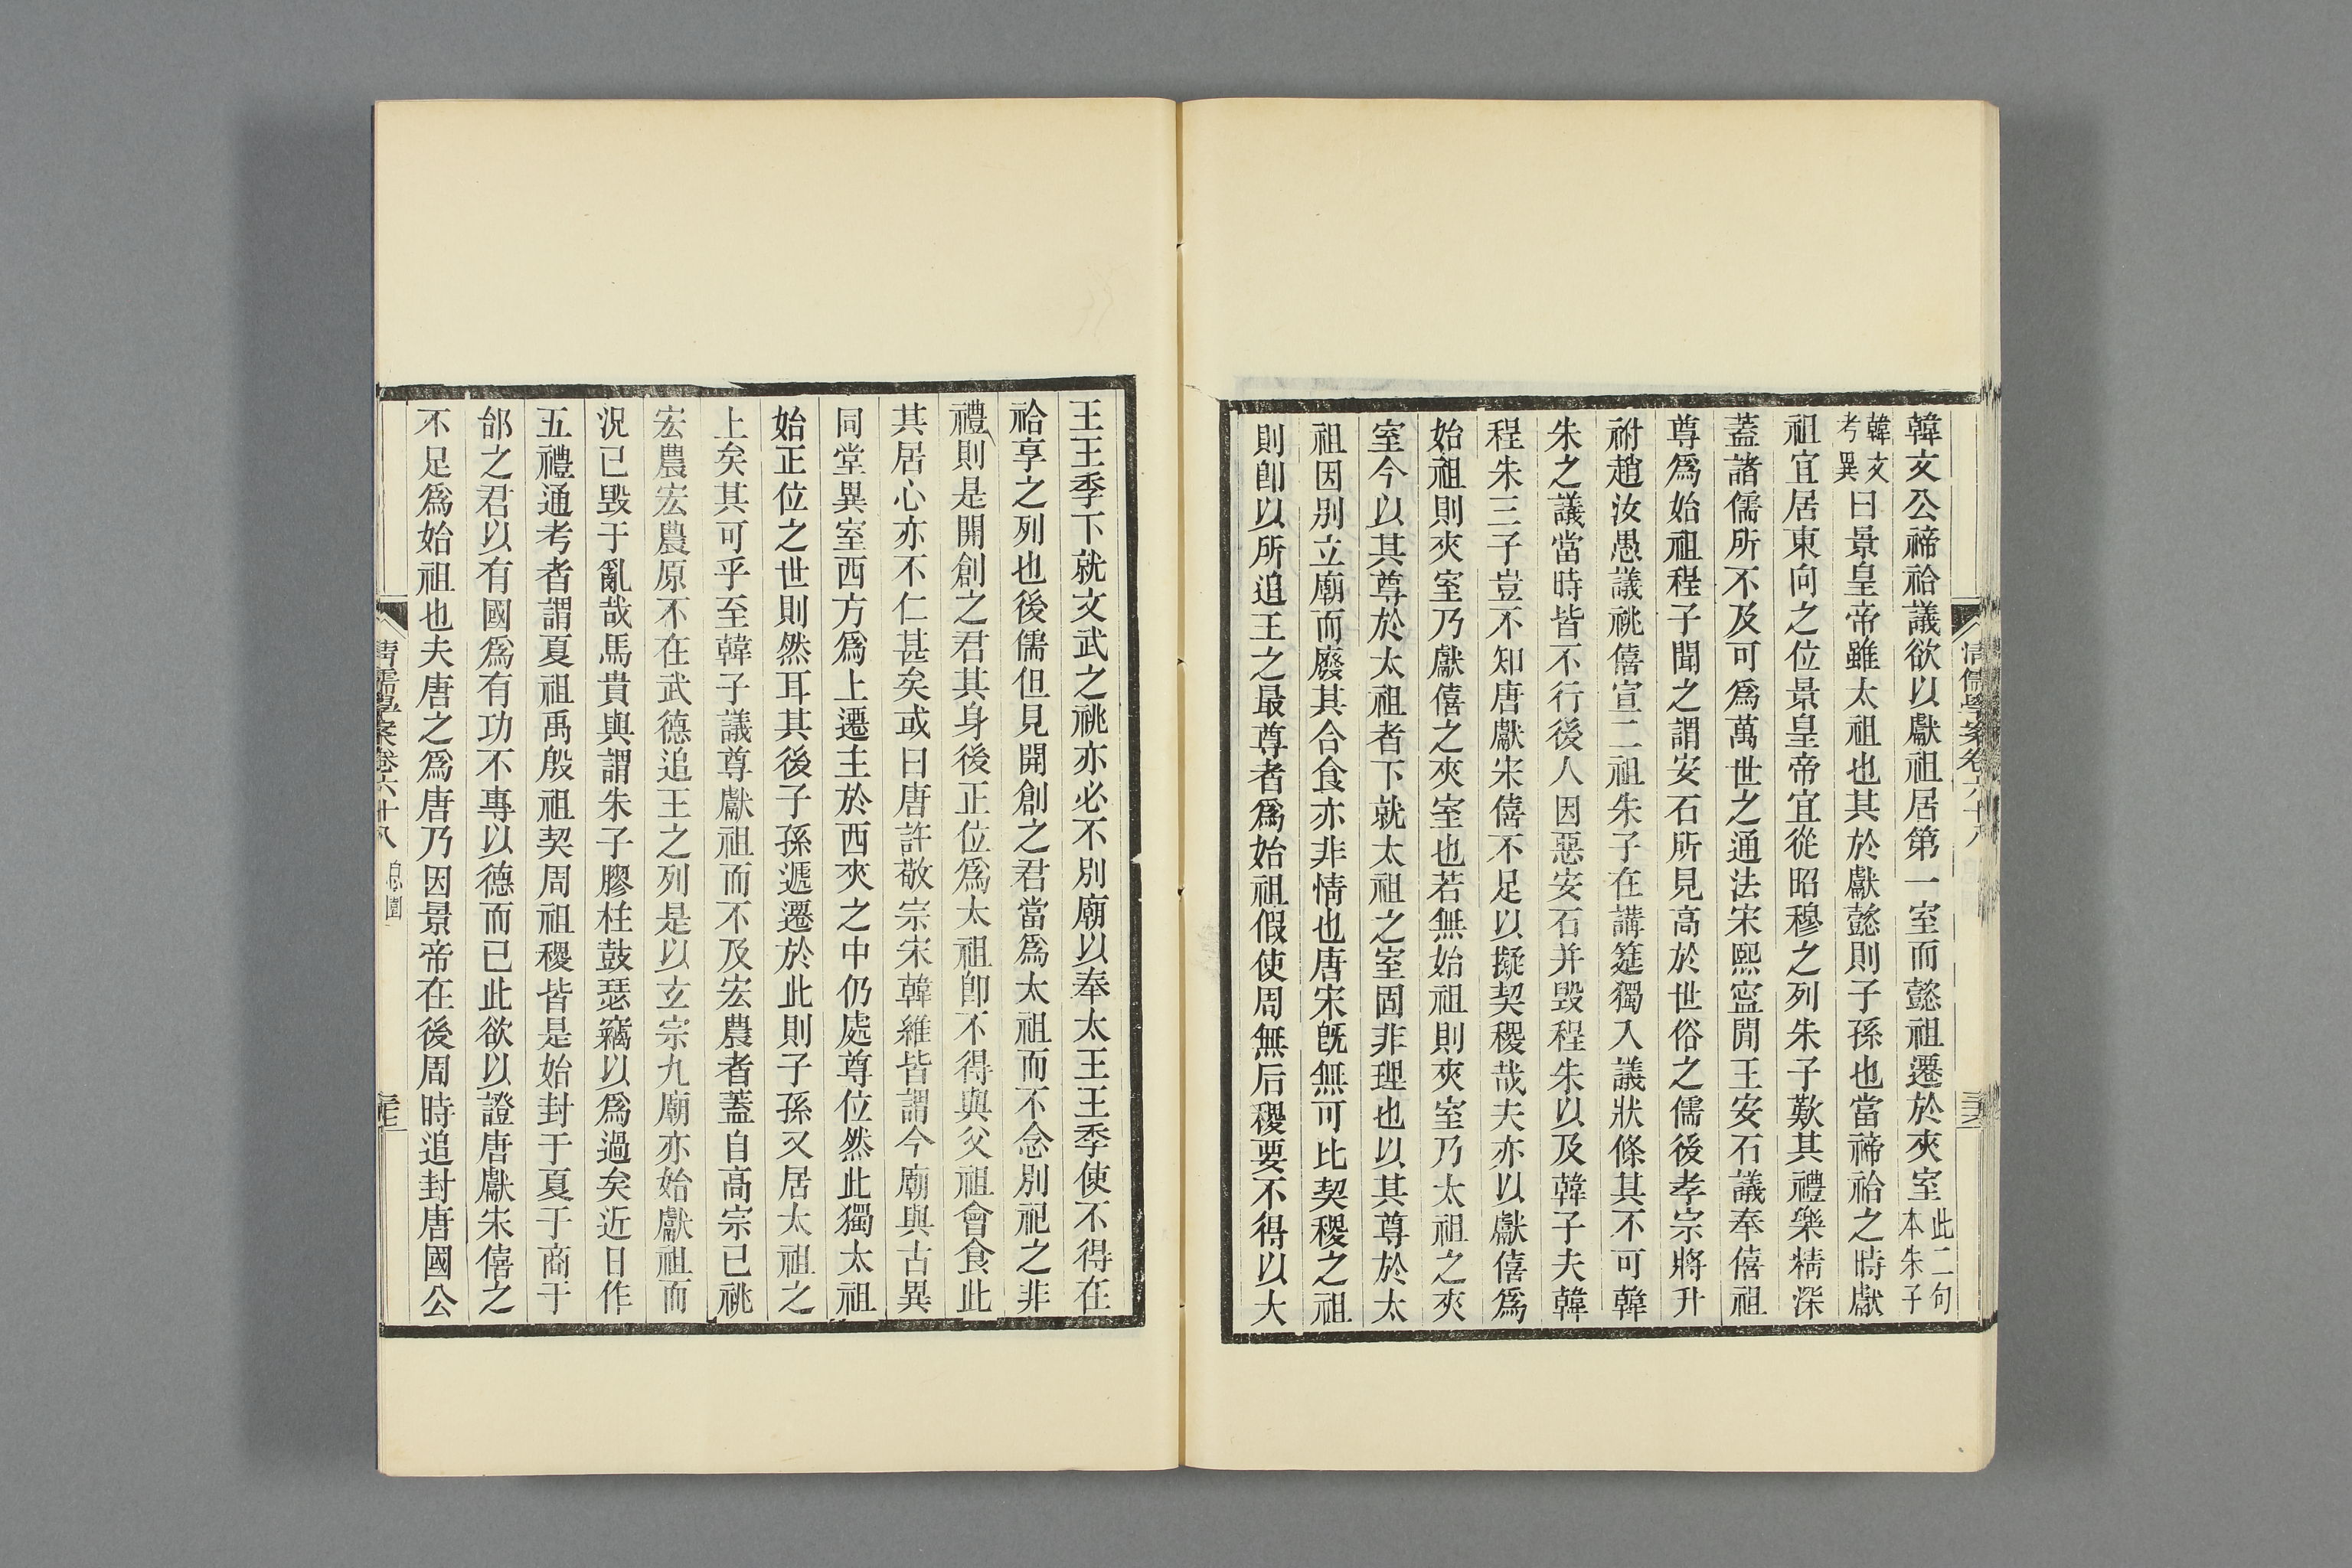 韓文公禘祫議欲以獻祖居第一室而懿祖遷於夾室此二句本朱子
韓文考異曰景皇帝雖太祖也其於獻懿則子孫也當禘祫之時獻
祖宜居東向之位景皇帝宜從昭穆之列朱子歎其禮樂精深
蓋諸儒所不及可爲萬世之通法宋熙寍閒王安石議奉僖祖
尊爲始祖程子聞之謂安石所見高於世俗之儒後孝宗將升
祔趙汝愚議祧僖宣二祖朱子在講筵獨入議狀條其不可韓
朱之議當時皆不行後人因惡安石并毀程朱以及韓子夫韓
程朱三子豈不知唐獻宋僖不足以擬契稷哉夫亦以獻僖爲
始祖則夾室乃獻僖之夾室也若無始祖則夾室乃太祖之夾
室今以其尊於太祖者下就太祖之室固非理也以其尊於太
祖因別立廟而廢其合食亦非情也唐宋旣無可比契稷之祖
則卽以所追王之最尊者爲始祖假使周無后稷要不得以大
王王季下就文武之祧亦必不別廟以奉太王王季使不得在
祫享之列也後儒但見開創之君當爲太祖而不念別祀之非
禮則是開創之君其身後正位爲太祖卽不得與父祖會食此
其居心亦不仁甚矣或曰唐許敬宗宋韓維皆謂今廟與古異
同堂異室西方爲上遷主於西夾之中仍處尊位然此獨太祖
始正位之世則然耳其後子孫遞遷於此則子孫又居太祖之
上矣其可乎至韓子議尊獻祖而不及宏農者蓋自高宗已祧
宏農宏農原不在武德追王之列是以玄宗九廟亦始獻祖而
況已毀于亂哉馬貴與謂朱子膠柱鼓瑟竊以爲過矣近日作
五禮通考者謂夏祖禹殷祖契周祖稷皆是始封于夏于商于
邰之君以有國爲有功不專以德而已此欲以證唐獻宋僖之
不足爲始祖也夫唐之爲唐乃因景帝在後周時追封唐國公
清儒學案卷六十八
清儒學案卷六十八